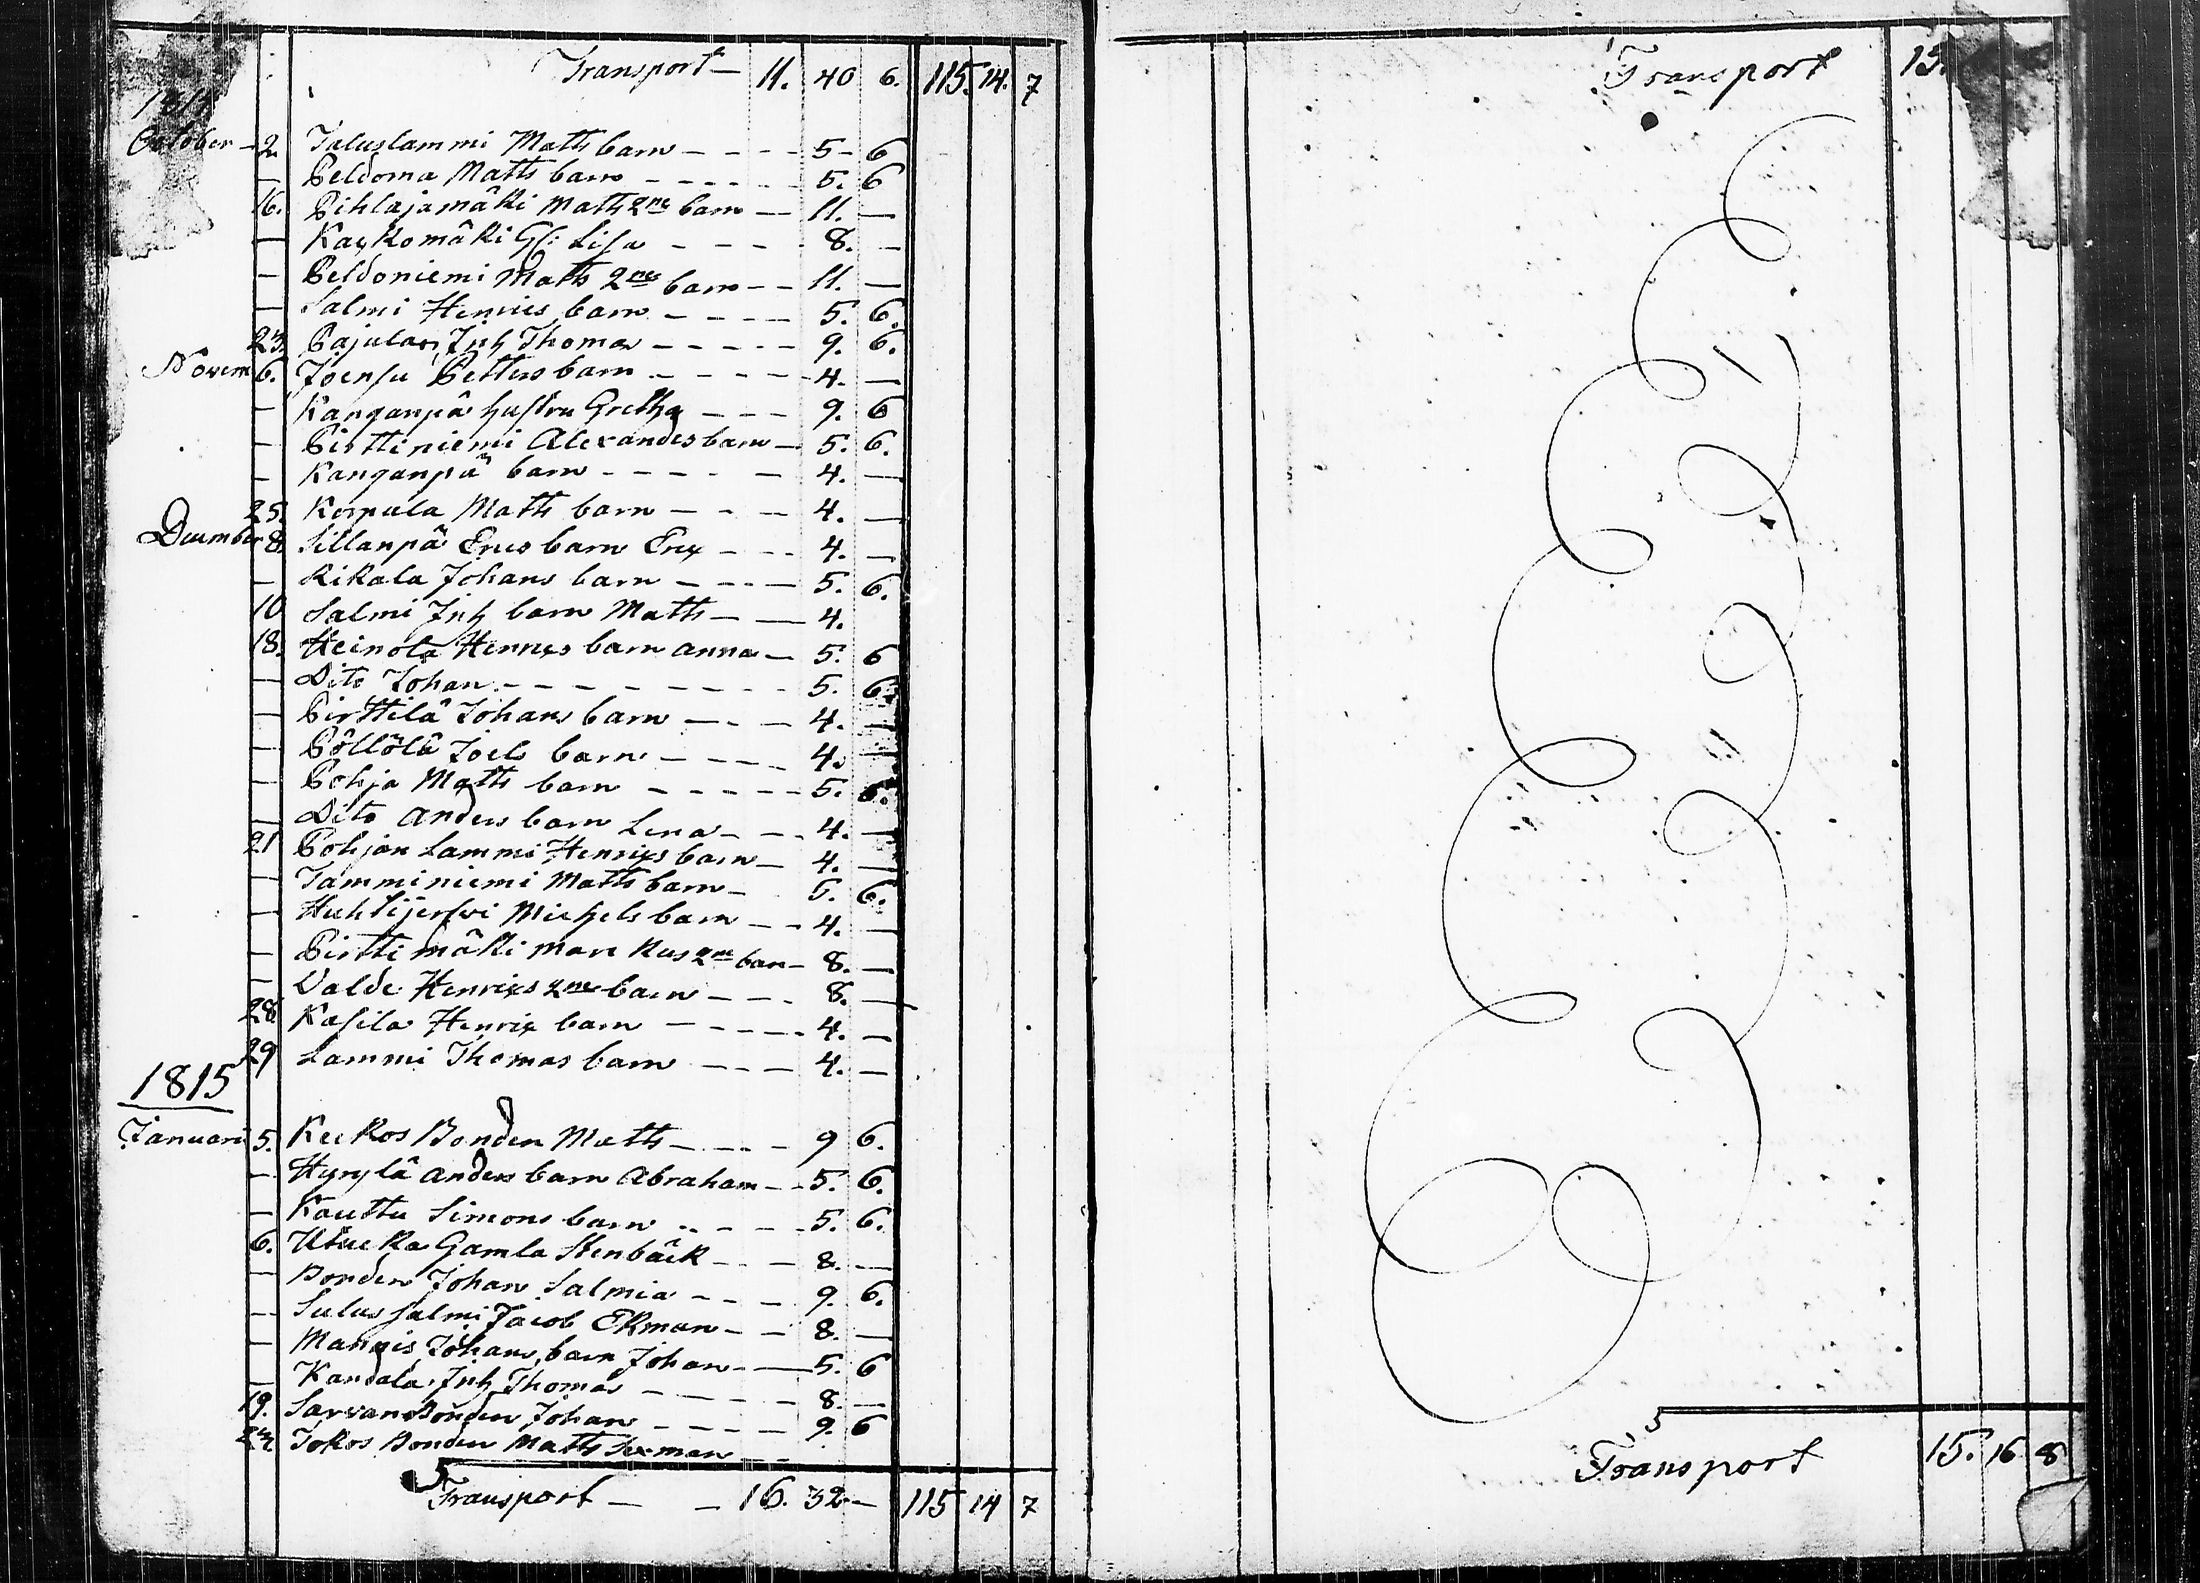 Transport — 11. 40 6. 115. 14. 7
October — 2. Taluslammi Matts barn — 5 — 6
— Peldoma Matts barn — 5. 6
16. Pihlajamäki Matts 2ne barn — 11. —
— Kaskomäki Gl: Lisa — 8. —
— Peldoniemi Matts 2ne barn — 11. —
— Salmi Henrics barn — 5. 6.
23. Pajulax Inh Thomas — 9. 6.
Novem 6. Joensu Petters barn — 4. —
— Kanganpä hustru Gretha — 9. 6
— Pirttiniemi Alexanders barn — 5. 6.
— Kanganpä barn — 4. —
25. Korpula Matts barn — 4. —
December 8. Sillanpä Erics barn Eric — 4. —
— Rikala Johans barn — 5. 6.
10 Salmi Inh barn Matts — 4.
18. Heinola Henrics barn Anna — 5. 6
— Dito Johan — 5. 6.
— Pirttilä Johans barn — 4. —
— Pöllölä Joels barn — 4. —
— Pohja Matts barn — 5. 6.
— Dito Anders barn Lena — 4. —
21 Pohjan Lammi Henrics barn — 4. —
— Tamminiemi Matts barn — 5. 6.
— Huhtijerfvi Michels barn — 4. —
— Pirttimäki Marckus 2ne barn — 8. —
— Valde Henrics 2ne barn — 8. —
28 Kasila Henric barn — 4. —
29 Lammi Thomas barn — 4. —
1815
Januari 5. Keckos Bonden Matts — 9 6.
— Hyrylä Anders barn Abraham — 5. 6.
— Kauttu Simons barn — 5. 6.
6. Gamla Stenbäck — 8. —
— Bonden Johan Salmia — 9. 6.
— Sulussalmi Jacob Ekman — 8. —
— Mangis Johans barn Johan — 5. 6
— Kandala Inh Thomas — 8. —
19. Sarvan Bonden Johan — 9. 6
24 Jokos Bonden Matts Sexman —
Transport — 16. 32 — 115 14 7
Transport 15.
Transport 15. 16 8